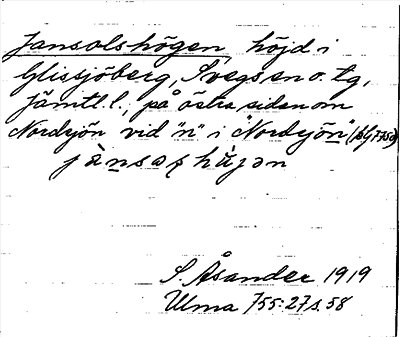 Jansolshögen, höjd i
Glissjöberg, Svegs sn o. tg,
Jämtl. l., på östra sidan om
Nordsjön vid "n" i "Nordsjön"
jànsaɽhùjən
S. Åsander 1919
Ulma 755:27 s. 58